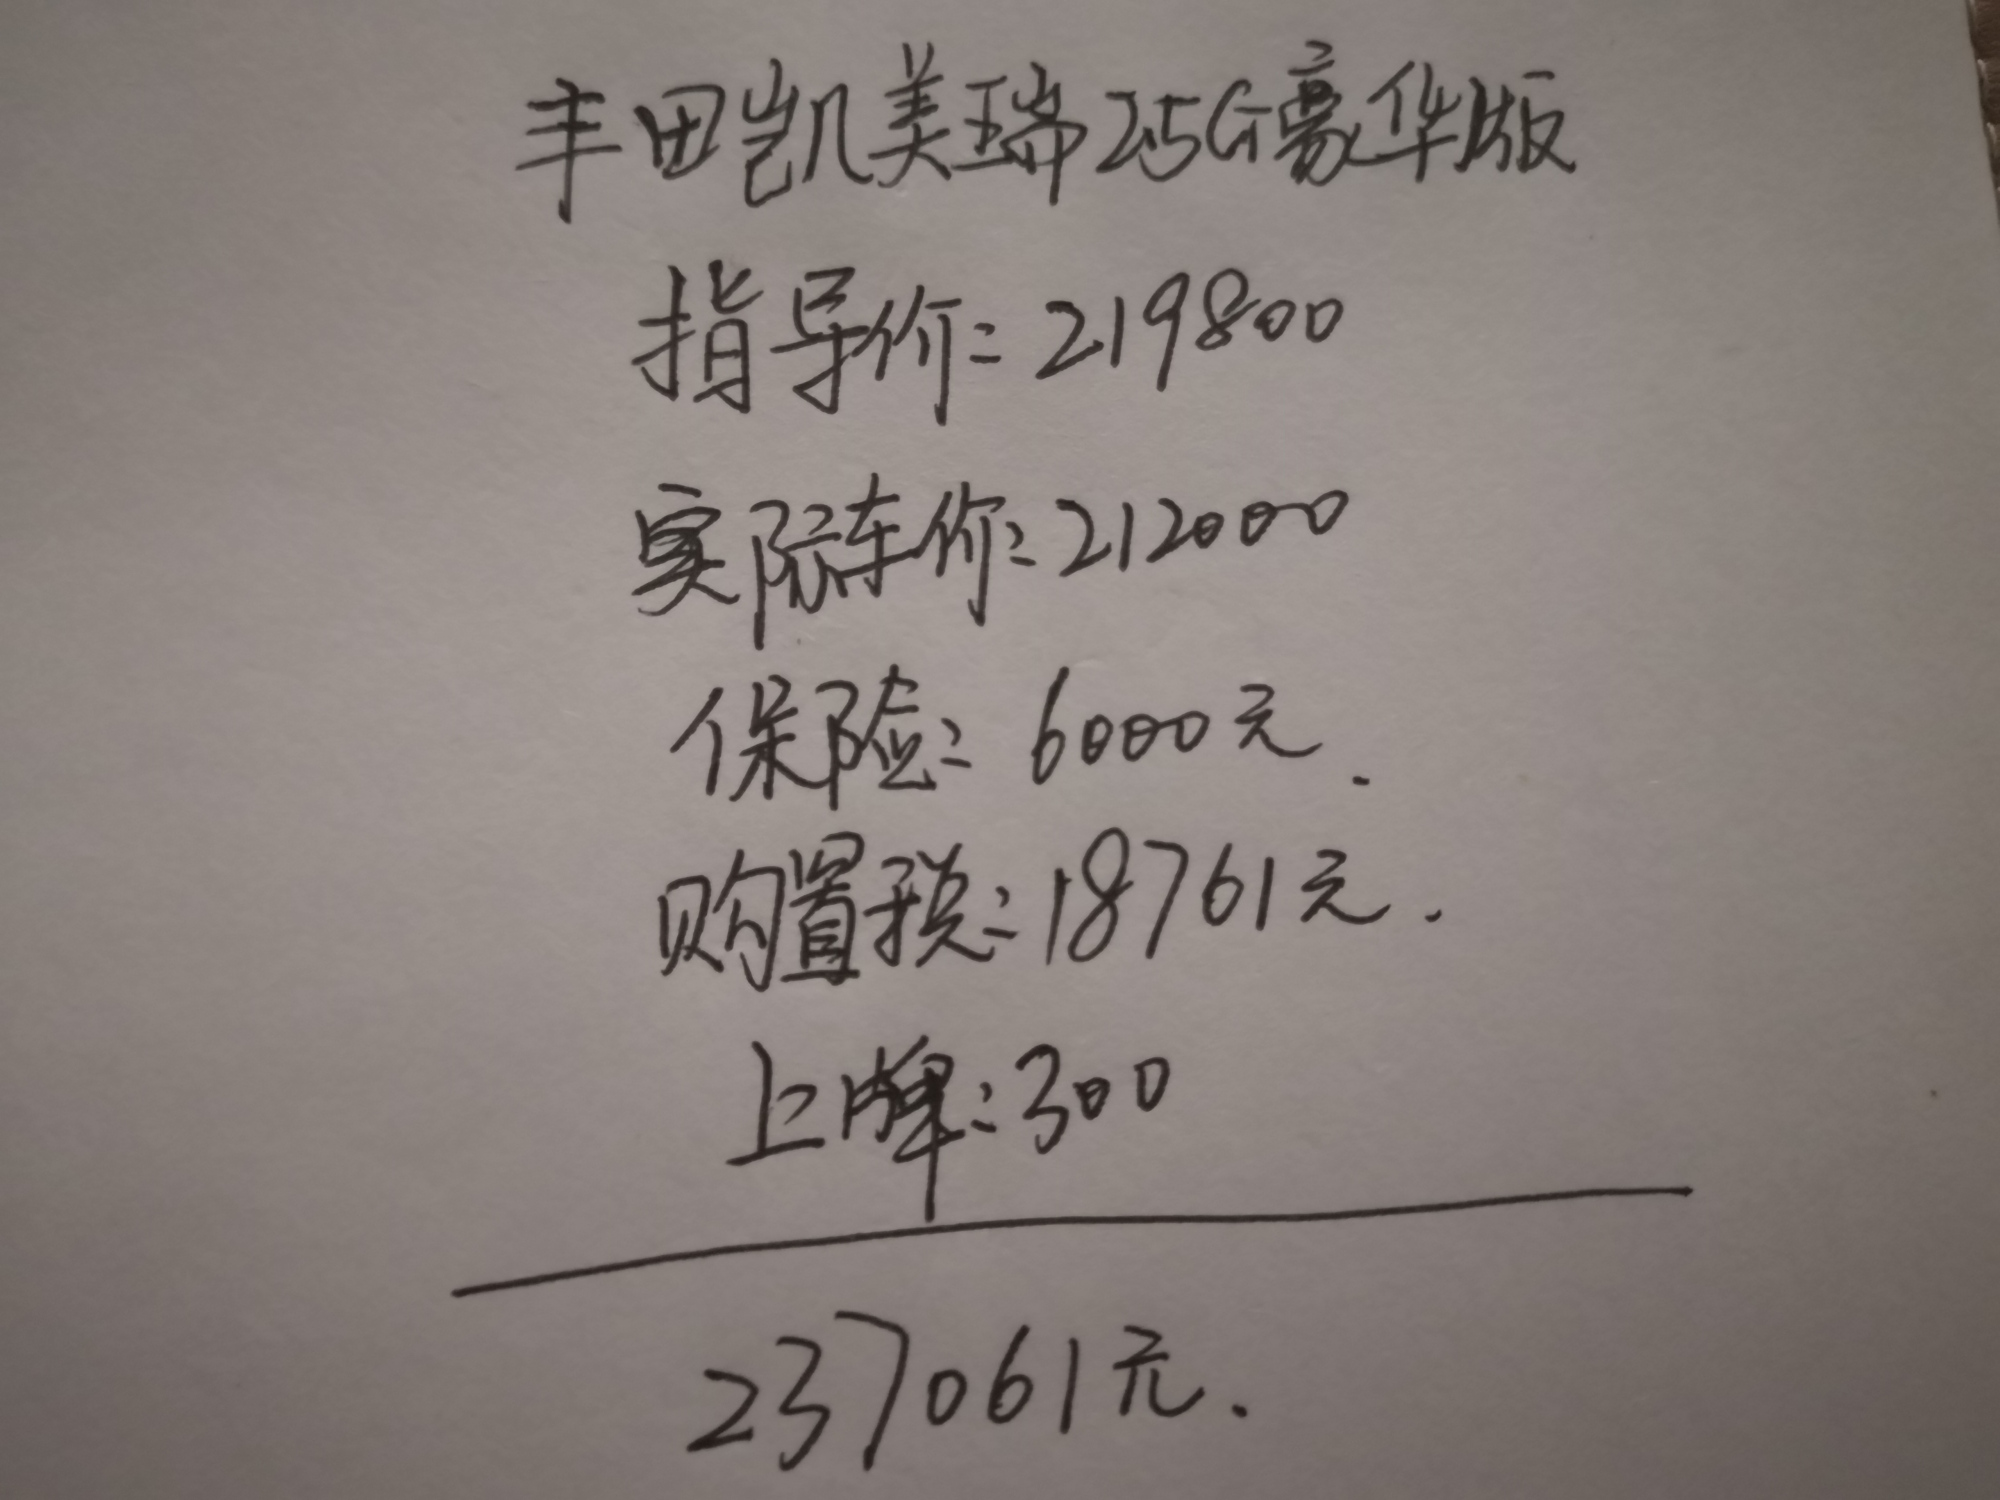 丰田凯美瑞2.5G豪华版
指导价:219800
实际车价:212000
保险:6000元.
购置税:18761元.
上牌:300
237061元.